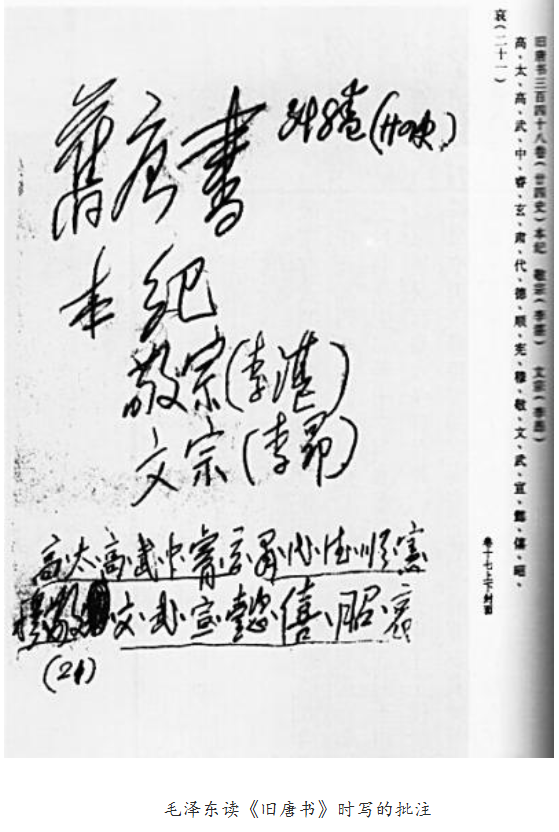 旧唐书三百四十八卷(廿四史)本纪 敬宗(李湛) 文宗(李昂)
高、太、高、武、中、睿、玄、肃、代、德、顺、宪、穆、敬、文、武、宣、懿、僖、昭、
哀(二十一)
卷十七上下封面
舊唐書 348卷(廿四史)
本紀
敬宗(李湛)
文宗(李昂)
高、太、高、武、中、睿、玄、肃、代、德、顺、憲
穆、敬、文、武、宣、懿、僖、昭、哀
(21)
毛泽东读《旧唐书》时写的批注